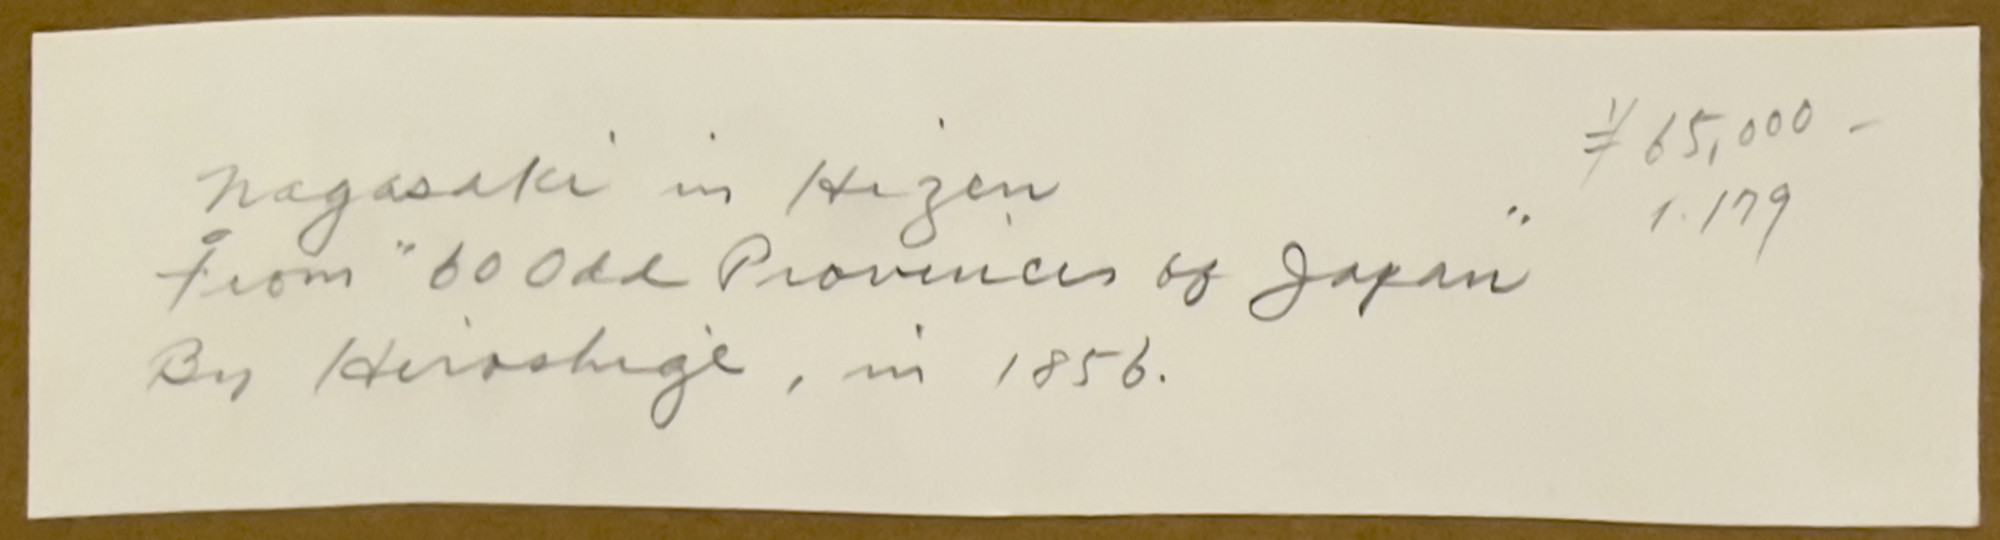 Nagasaki in Hizen
From "60 Odd Provinces of Japan"
By Hiroshige, in 1856.
¥65,000-
1.179